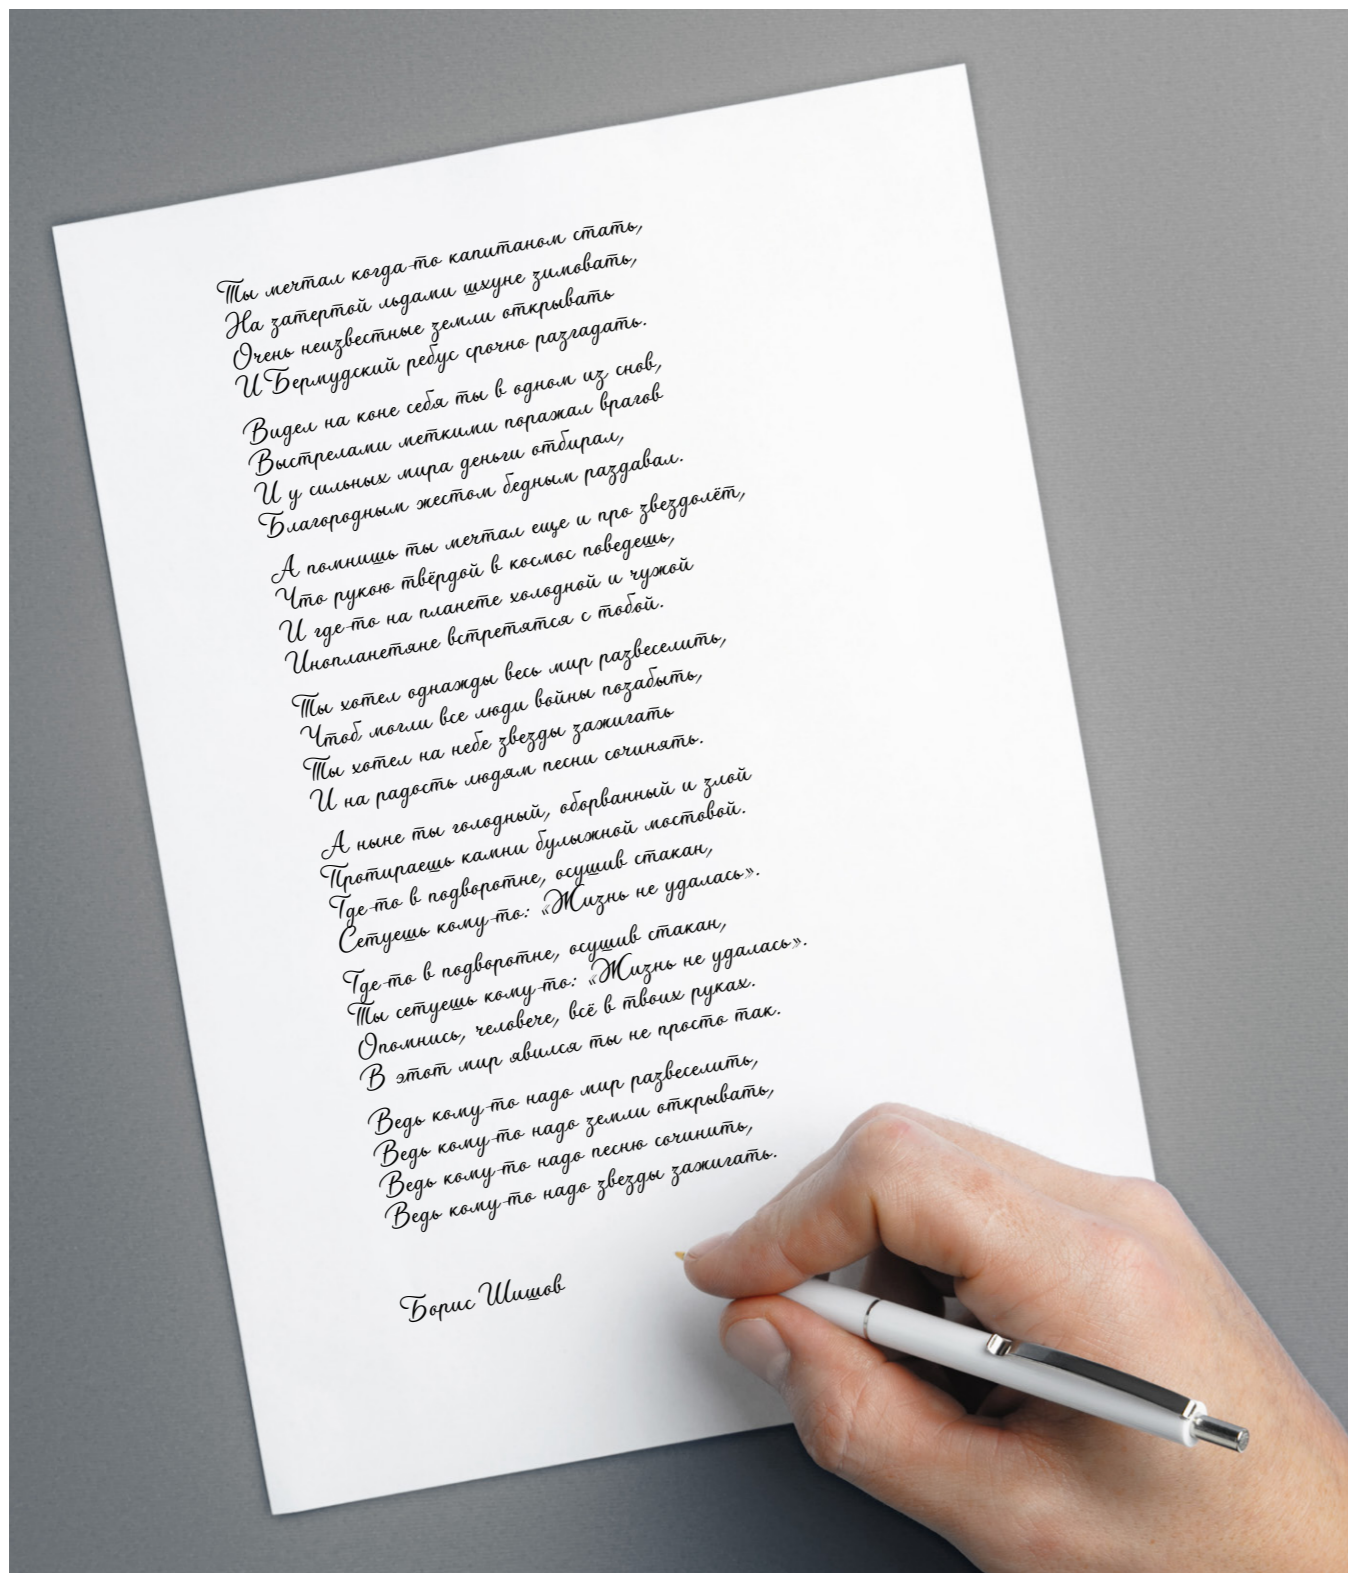 Ты мечтал когда-то капитаном стать,
На затертой льдами шхуне зимовать,
Очень неизвестные земли открывать
И Бермудский ребус срочно разгадать.
Видел на коне себя ты в одном из снов,
Выстрелами меткими поражал врагов
И у сильных мира деньги отбирал,
Благородным жестом бедным раздавал.
А помнишь ты мечтал еще и про звездолёт,
Что рукою твёрдой в космос поведешь,
И где-то на планете холодной и чужой
Инопланетяне встретятся с тобой.
Ты хотел однажды весь мир развеселить,
Чтоб могли все люди войны позабыть,
Ты хотел на небе звезды зажигать
И на радость людям песни сочинять.
А ныне ты голодный, оборванный и злой
Протираешь камни булыжной мостовой.
Где-то в подворотне, осушив стакан,
Сетуешь кому-то: «Жизнь не удалась».
Где-то в подворотне, осушив стакан,
Ты сетуешь кому-то: «Жизнь не удалась».
Опомнись, человече, всё в твоих руках.
В этот мир явился ты не просто так.
Ведь кому-то надо мир развеселить,
Ведь кому-то надо земли открывать,
Ведь кому-то надо песню сочинить,
Ведь кому-то надо звезды зажигать.
Борис Шишов